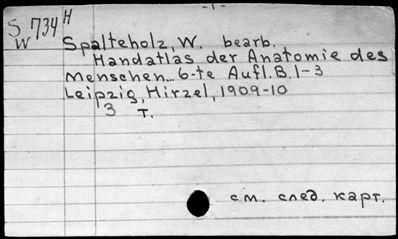 -1-
S 734 H
W
Spalteholz, W. bearb.
Handatlas der Anatomie des
Menschen... 6-te Aufl. B. 1-3
Leipzig, Hirzel, 1909-10
3 т.
см. след. карт.